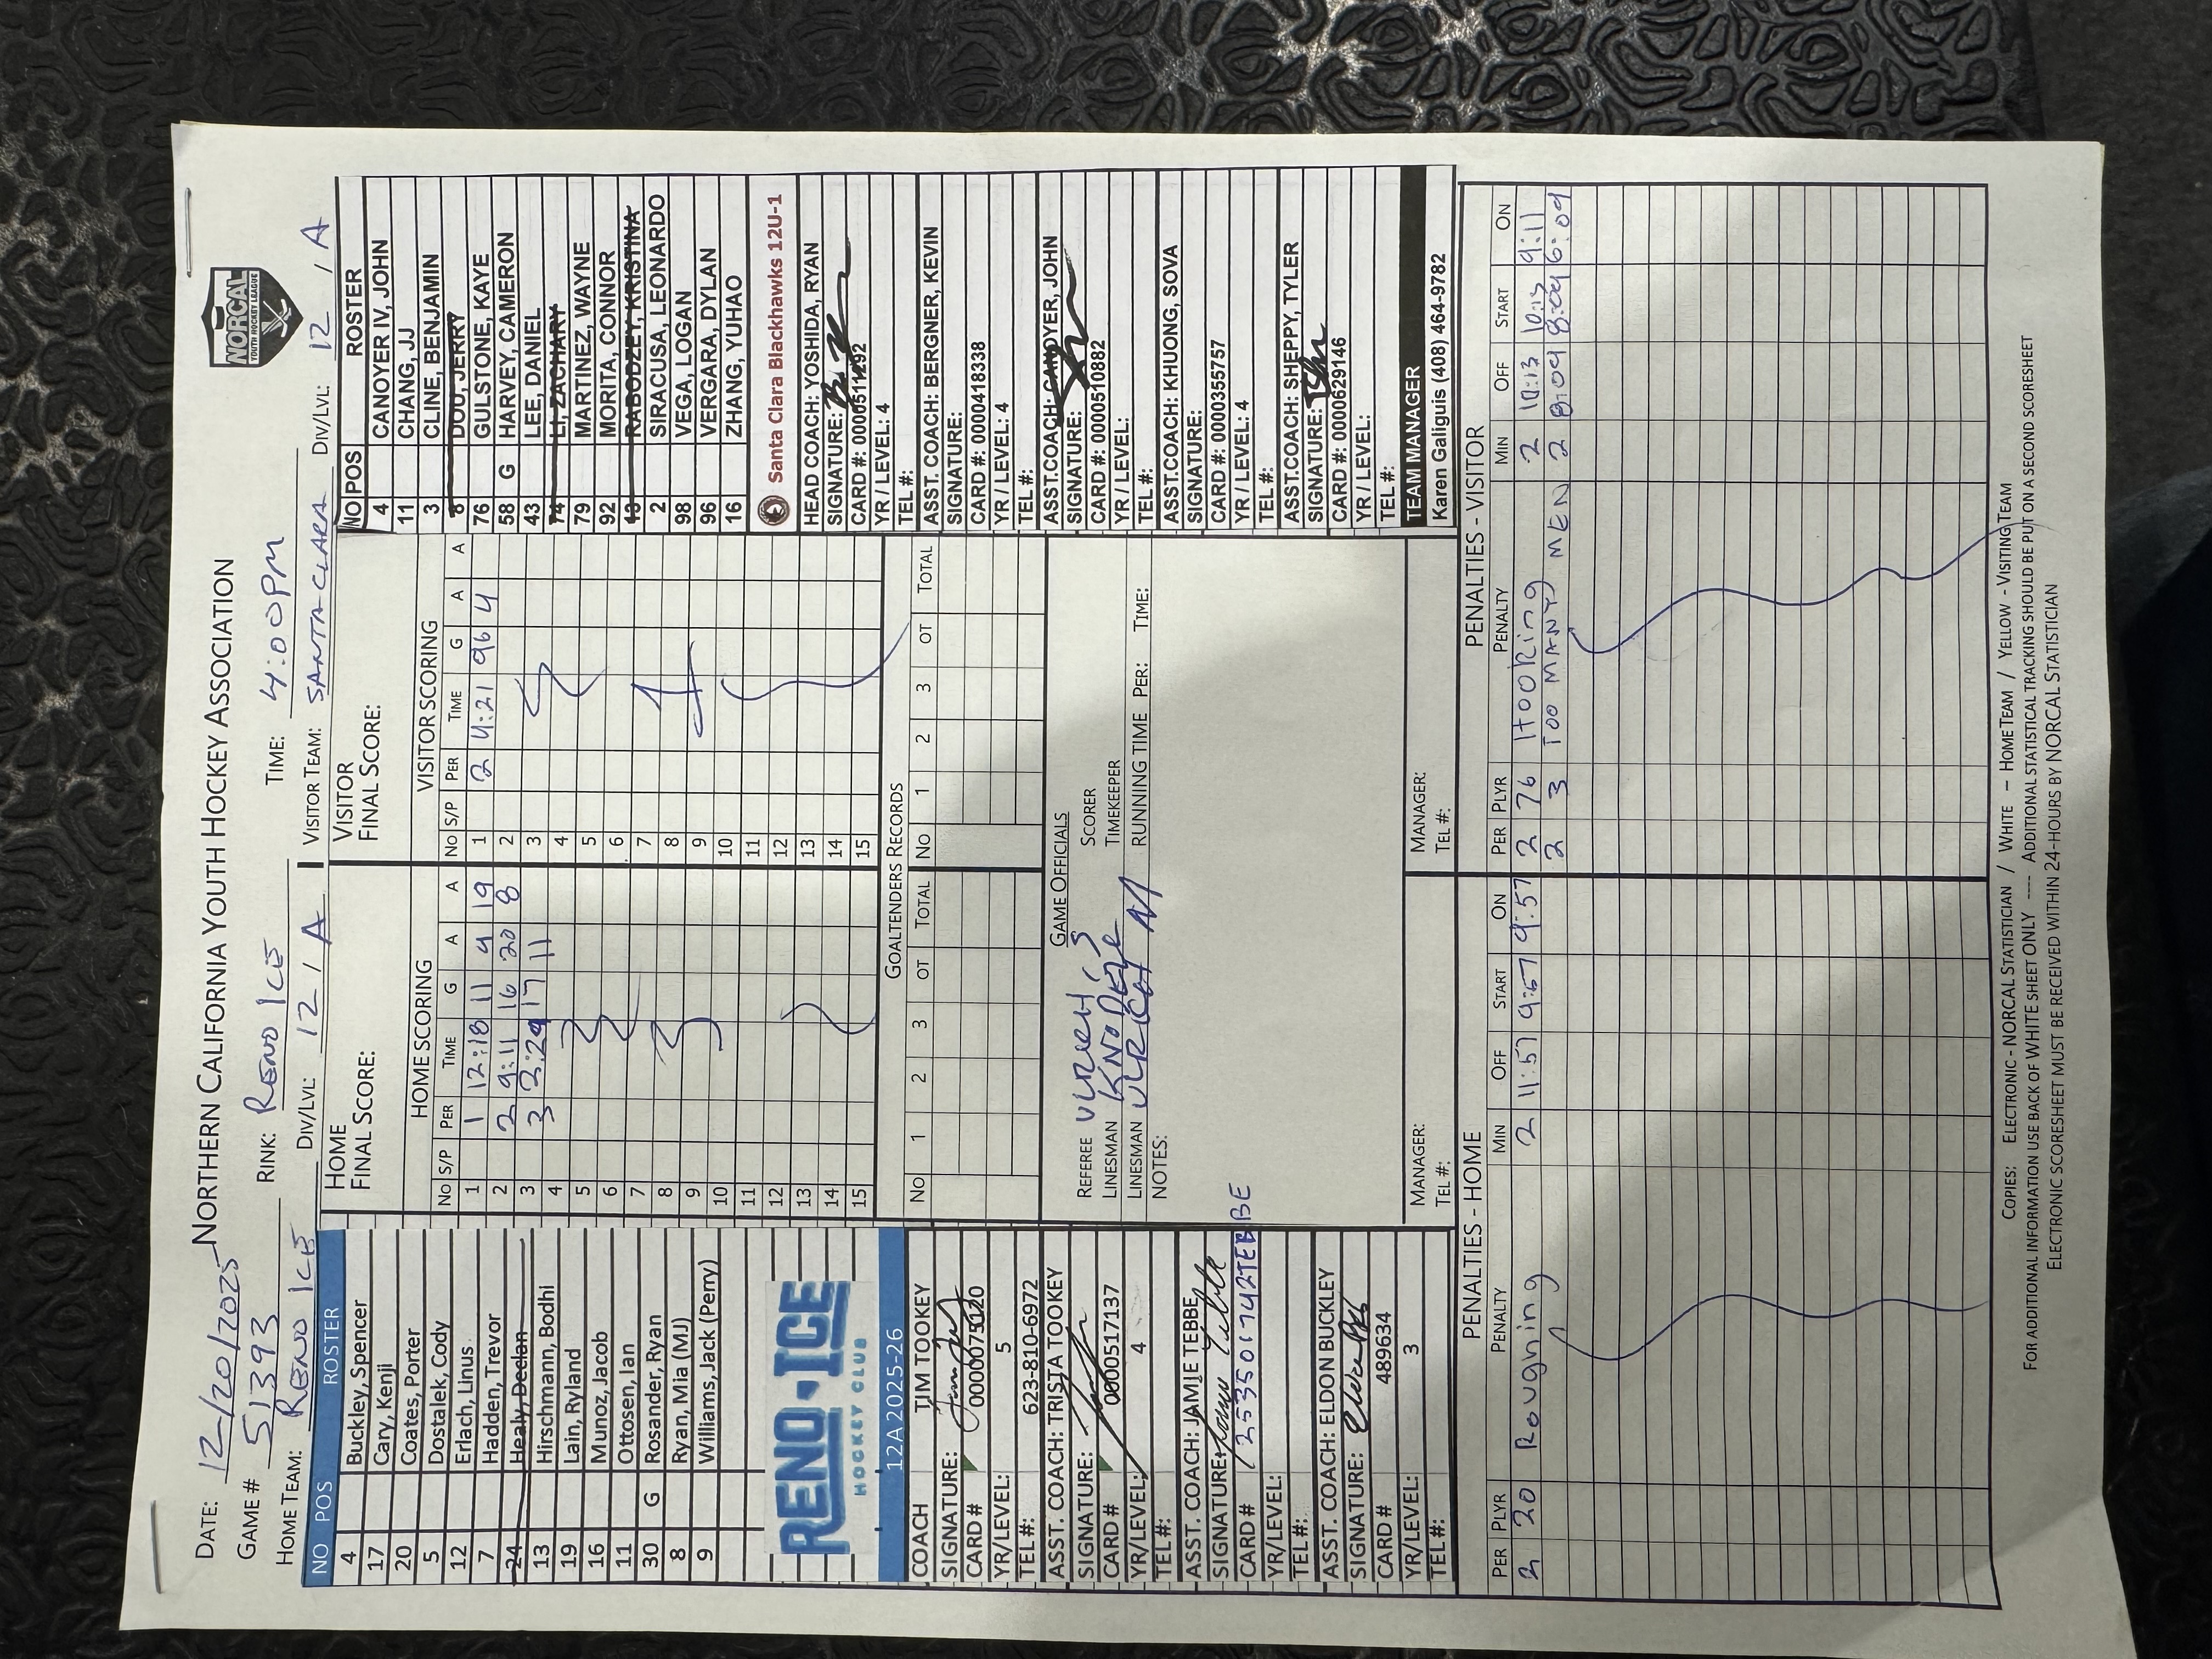 DATE: 12/20/2025 NORTHERN CALIFORNIA YOUTH HOCKEY ASSOCIATION
NORCAL
YOUTH HOCKEY LEAGUE
GAME # 51393 RINK: RENO ICE TIME: 4:00PM
HOME TEAM: RENO ICE DIV/LVL: 12 / A VISITOR TEAM: SANTA CLARA DIV/LVL: 12 / A
NO POS ROSTER
4 Buckley, Spencer
17 Cary, Kenji
20 Coates, Porter
5 Dostalek, Cody
12 Erlach, Linus
7 Hadden, Trevor
24 Healy, Declan
13 Hirschmann, Bodhi
19 Lain, Ryland
16 Munoz, Jacob
11 Ottosen, Ian
30 G Rosander, Ryan
8 Ryan, Mia (MJ)
9 Williams, Jack (Perry)
RENO·ICE
HOCKEY CLUB
12A 2025-26
COACH TIM TOOKEY
SIGNATURE:
CARD #
YR/LEVEL: 5
TEL #: 623-810-6972
ASST. COACH: TRISTA TOOKEY
SIGNATURE:
CARD # 0000517137
YR/LEVEL: 4
TEL #:
ASST. COACH: JAMIE TEBBE
SIGNATURE:
CARD #
YR/LEVEL:
TEL #:
ASST. COACH: ELDON BUCKLEY
SIGNATURE:
CARD # 489634
YR/LEVEL: 3
TEL #:
HOME
FINAL SCORE:
HOME SCORING
No S/P PER TIME G A A
1 1 12:18 11 4 19
2 2 9:11 16 20 8
3 3 2:29 17 11
4
5
6
7
8
9
10
11
12
13
14
15
VISITOR
FINAL SCORE:
VISITOR SCORING
No S/P PER TIME G A A
1 2 4:21 96 4
2
3
4
5
6
7
8
9
10
11
12
13
14
15
GOALTENDERS RECORDS
No 1 2 3 OT TOTAL No 1 2 3 OT TOTAL
GAME OFFICIALS
REFEREE SCORER
LINESMAN TIMEKEEPER
LINESMAN RUNNING TIME PER: TIME:
NOTES:
MANAGER: MANAGER:
TEL #: TEL #:
NO POS ROSTER
4 CANOYER IV, JOHN
11 CHANG, JJ
3 CLINE, BENJAMIN
8 DOU, JERRY
76 GULSTONE, KAYE
58 G HARVEY, CAMERON
43 LEE, DANIEL
74 LI, ZACHARY
79 MARTINEZ, WAYNE
92 MORITA, CONNOR
19 RABODZEY, KRISTINA
2 SIRACUSA, LEONARDO
98 VEGA, LOGAN
96 VERGARA, DYLAN
16 ZHANG, YUHAO
Santa Clara Blackhawks 12U-1
HEAD COACH: YOSHIDA, RYAN
SIGNATURE:
CARD #:
YR / LEVEL: 4
TEL #:
ASST. COACH: BERGNER, KEVIN
SIGNATURE:
CARD #: 0000418338
YR / LEVEL: 4
TEL #:
ASST.COACH: CANOYER, JOHN
SIGNATURE:
CARD #: 0000510882
YR / LEVEL:
TEL #:
ASST.COACH: KHUONG, SOVA
SIGNATURE:
CARD #: 0000355757
YR / LEVEL: 4
TEL #:
ASST.COACH: SHEPPY, TYLER
SIGNATURE:
CARD #: 0000629146
YR / LEVEL:
TEL #:
TEAM MANAGER
Karen Galiguis (408) 464-9782
PENALTIES - HOME
PER PLYR PENALTY MIN OFF START ON
2 20 Roughing 2 11:57 9:57
PENALTIES - VISITOR
PER PLYR PENALTY MIN OFF START ON
2 76 HOOKing 2 10:13 9:11
2 3 TOO MANY MEN 2 8:09 8:09 6:09
COPIES: ELECTRONIC - NORCAL STATISTICIAN / WHITE – HOME TEAM / YELLOW - VISITING TEAM
FOR ADDITIONAL INFORMATION USE BACK OF WHITE SHEET ONLY ---- ADDITIONAL STATISTICAL TRACKING SHOULD BE PUT ON A SECOND SCORESHEET
ELECTRONIC SCORESHEET MUST BE RECEIVED WITHIN 24-HOURS BY NORCAL STATISTICIAN